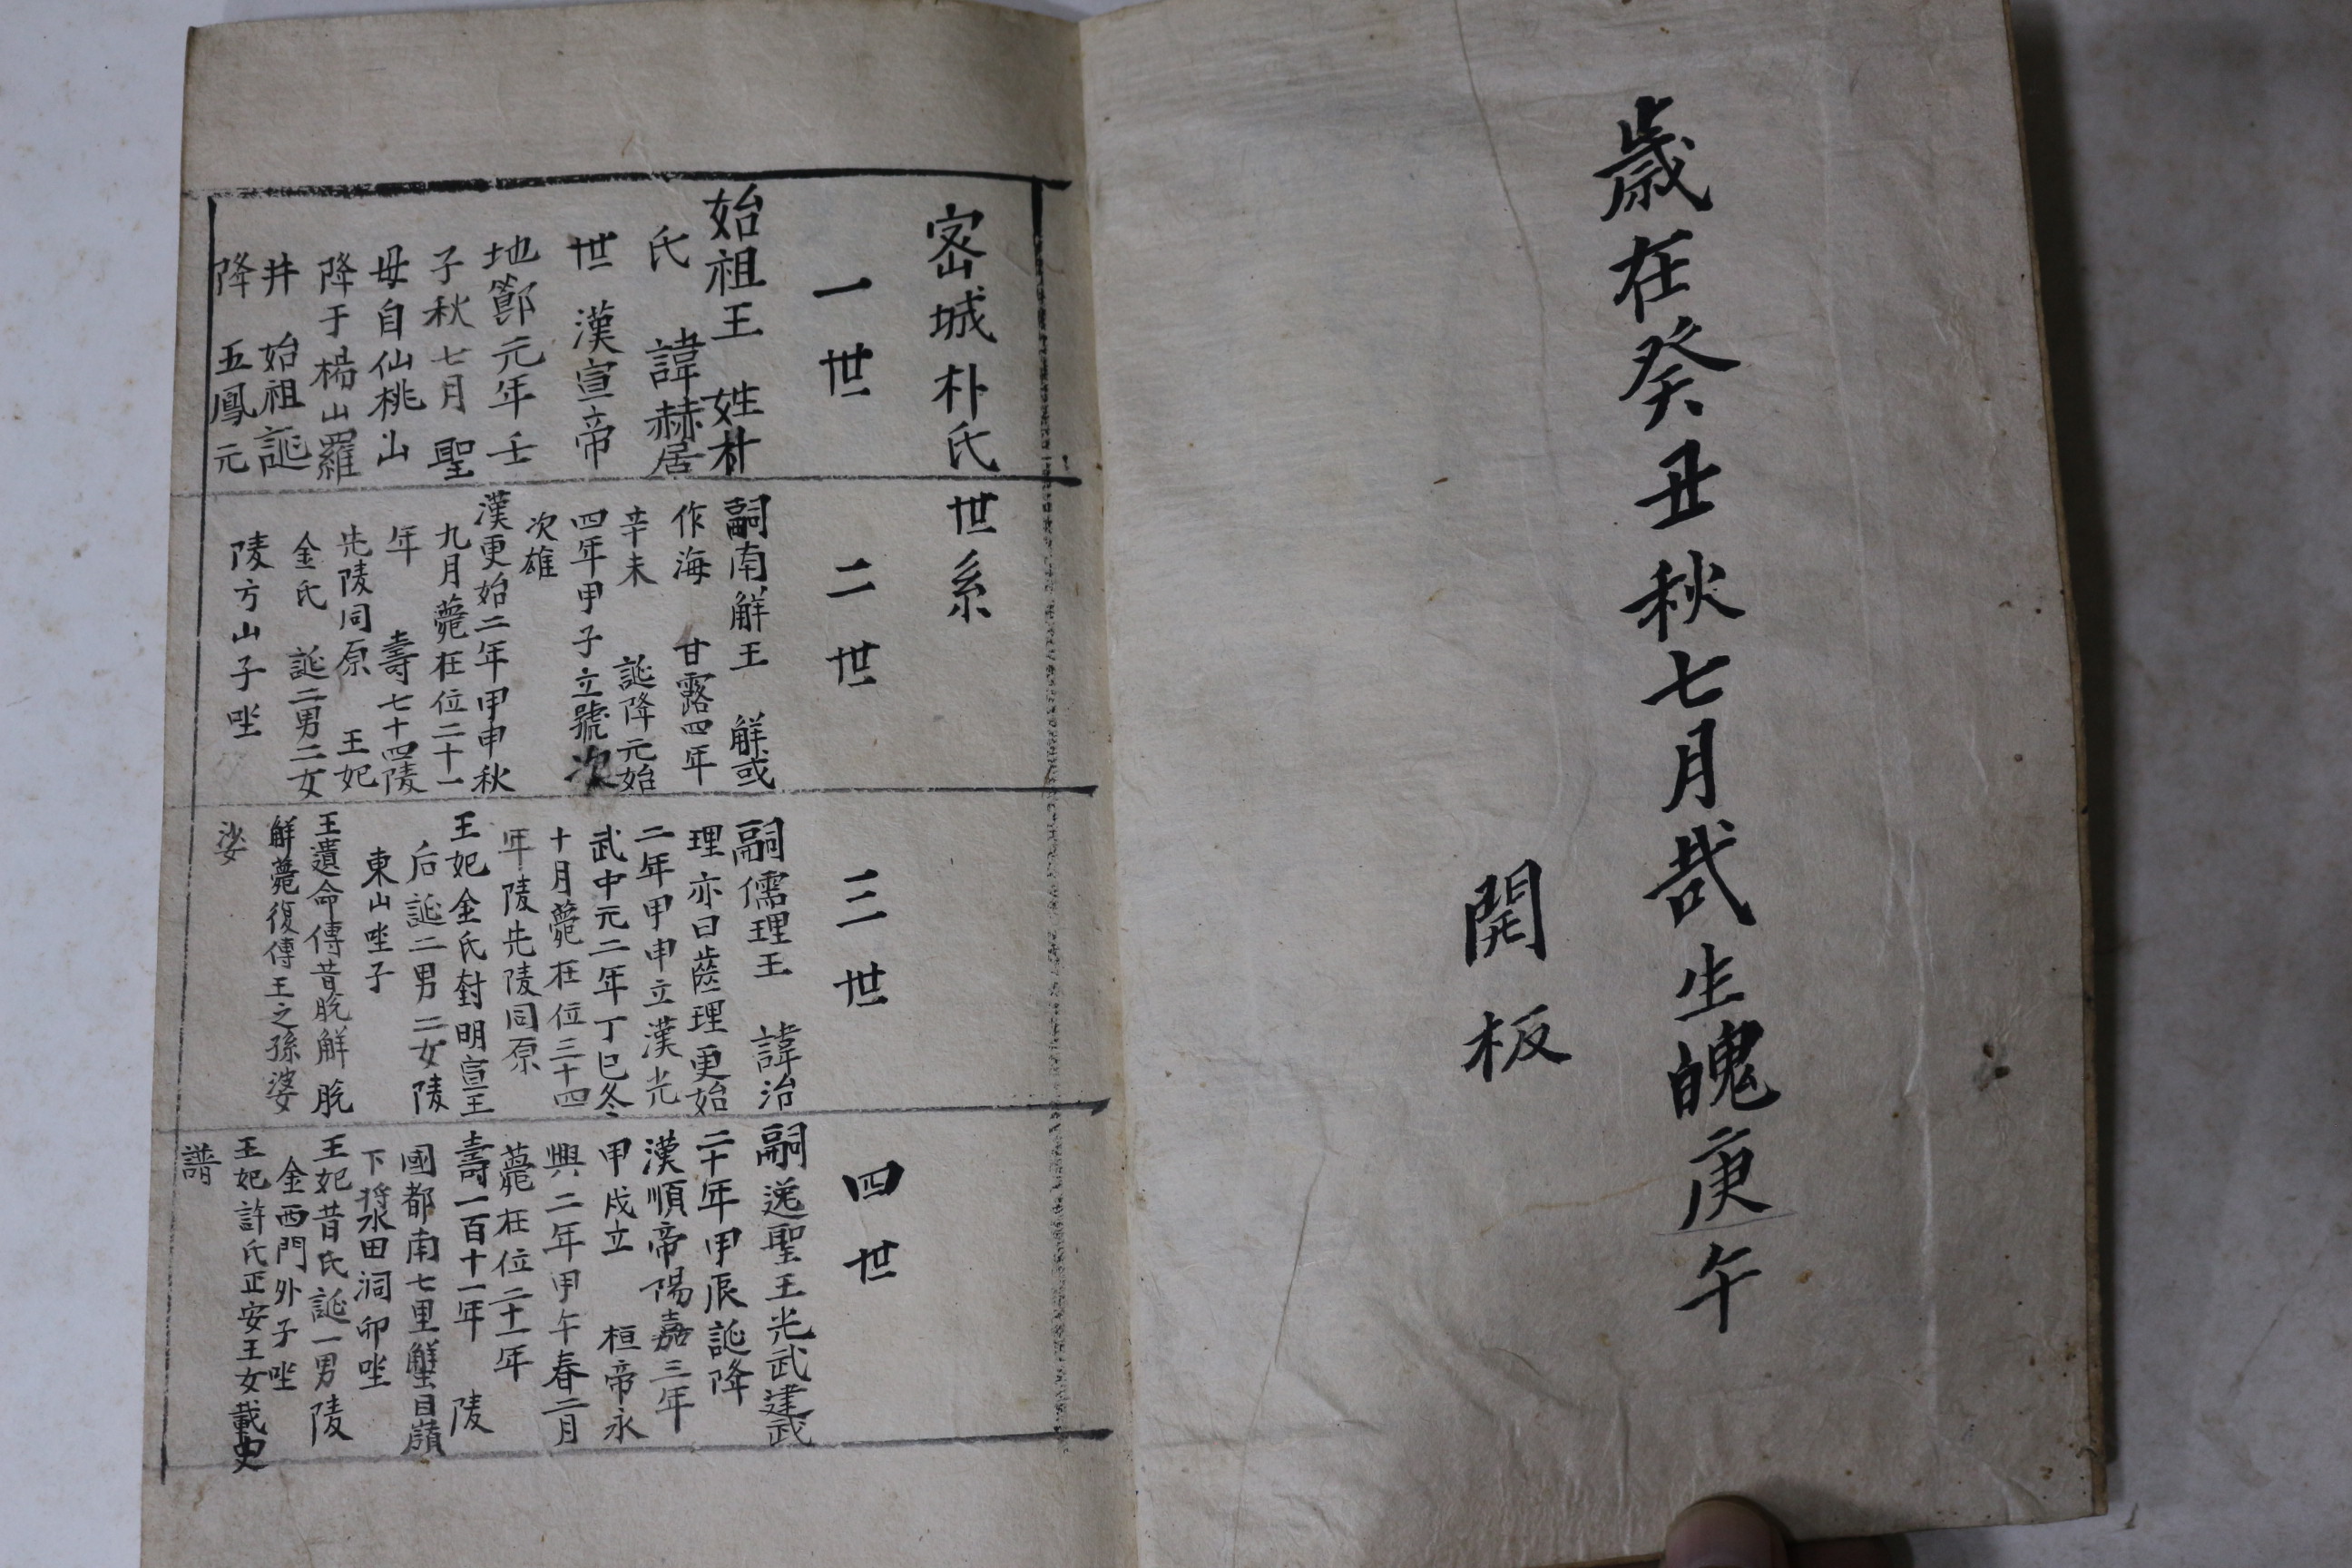 歲在癸丑秋七月哉生魄庚午
開板
密城朴氏世系
一世
始祖王 姓朴
氏 諱赫居
世 漢宣帝
地節元年壬
子秋七月 聖
母自仙桃山
降于楊山羅
井 始祖誕
降 五鳳元
二世
嗣南解王 解或
作海 甘露四年
辛未 誕降元始
四年甲子立號次
次雄
漢更始二年甲申秋
九月薨在位二十一
年 壽七十四陵
先陵同原 王妃
金氏 誕二男二女
陵方山子坐
三世
嗣儒理王 諱治
理亦曰齒理更始
二年甲申立漢光
武中元二年丁巳冬
十月薨在位三十四
年陵先陵同原
王妃金氏封明宣王
后誕二男二女陵
東山坐子
王遺命傳昔脫解脫
解薨復傳王之孫婆
娑
四世
嗣逸聖王光武建武
二十年甲辰誕降
漢順帝陽嘉三年
甲戌立 桓帝永
興二年甲午春二月
薨在位二十一年
壽一百十一年 陵
國都南七里蟹目嶺
下將水田洞卯坐
王妃昔氏誕一男陵
金西門外子坐
王妃許氏正安王女載史
譜